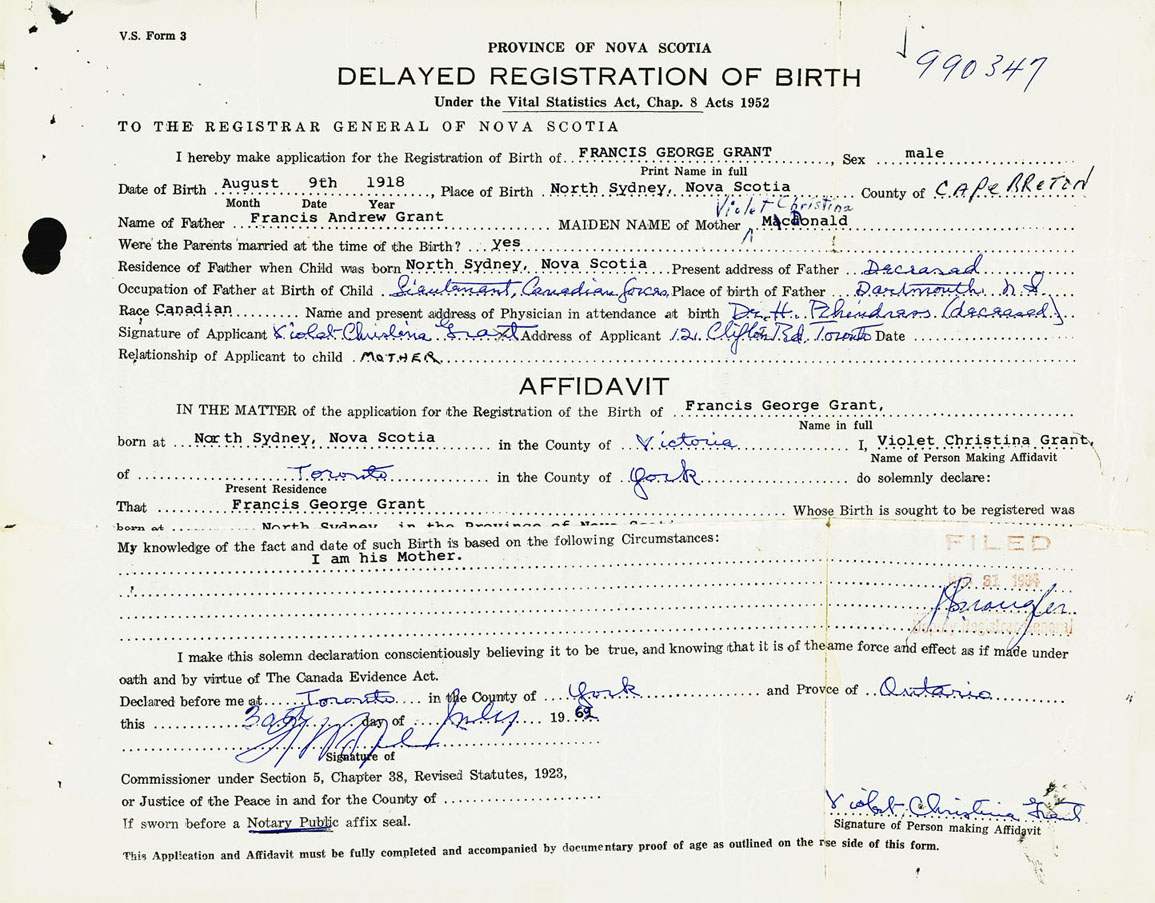 V.S. Form 3
990347
PROVINCE OF NOVA SCOTIA
DELAYED REGISTRATION OF BIRTH
Under the Vital Statistics Act, Chap. 8 Acts 1952
TO THE REGISTRAR GENERAL OF NOVA SCOTIA
I hereby make application for the Registration of Birth of FRANCIS GEORGE GRANT, Sex male
Print Name in full
Date of Birth August 9th 1918, Place of Birth North Sydney, Nova Scotia County of CAPE BRETON
Month Date Year
Violet Christina
Name of Father Francis Andrew Grant MAIDEN NAME of Mother MacDonald
Were the Parents married at the time of the Birth? yes
Residence of Father when Child was born North Sydney, Nova Scotia Present address of Father Deceased
Occupation of Father at Birth of Child Lieutenant, Canadian forces, Place of birth of Father Dartmouth N.S.
Race Canadian Name and present address of Physician in attendance at birth Dr. H. (deceased)
Signature of Applicant Violet Christina Grant Address of Applicant 12 Clifton Rd. Toronto Date
Relationship of Applicant to child MOTHER
AFFIDAVIT
IN THE MATTER of the application for the Registration of the Birth of Francis George Grant,
Name in full
born at North Sydney, Nova Scotia in the County of Victoria I, Violet Christina Grant,
Name of Person Making Affidavit
of Toronto in the County of York do solemnly declare:
Present Residence
That Francis George Grant Whose Birth is sought to be registered was
born at North Sydney, in the Province of Nova Scotia
My knowledge of the fact and date of such Birth is based on the following Circumstances:
I am his Mother.
FILED
Deputy Registrar General
I make this solemn declaration conscientiously believing it to be true, and knowing that it is of the ame force and effect as if made under
oath and by virtue of The Canada Evidence Act.
Declared before me at Toronto in the County of York and Provce of Ontario
this day of July 1969
Signature of
Commissioner under Section 5, Chapter 38, Revised Statutes, 1923,
or Justice of the Peace in and for the County of
If sworn before a Notary Public affix seal.
Violet Christina Grant
Signature of Person making Affidavit
This Application and Affidavit must be fully completed and accompanied by documentary proof of age as outlined on the rse side of this form.